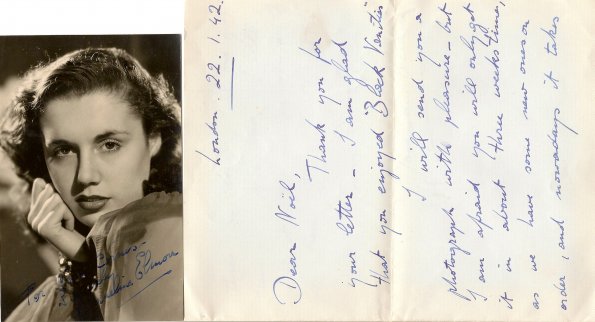 London. 22.1.42.
Dear Noël,
Thank you for
your letter - I am glad
that you enjoyed "Black Vanities"
I will send you a
photograph with pleasure - but
I am afraid you will only get
it in about three weeks' time,
as we have some new ones on
order, and nowadays it takes